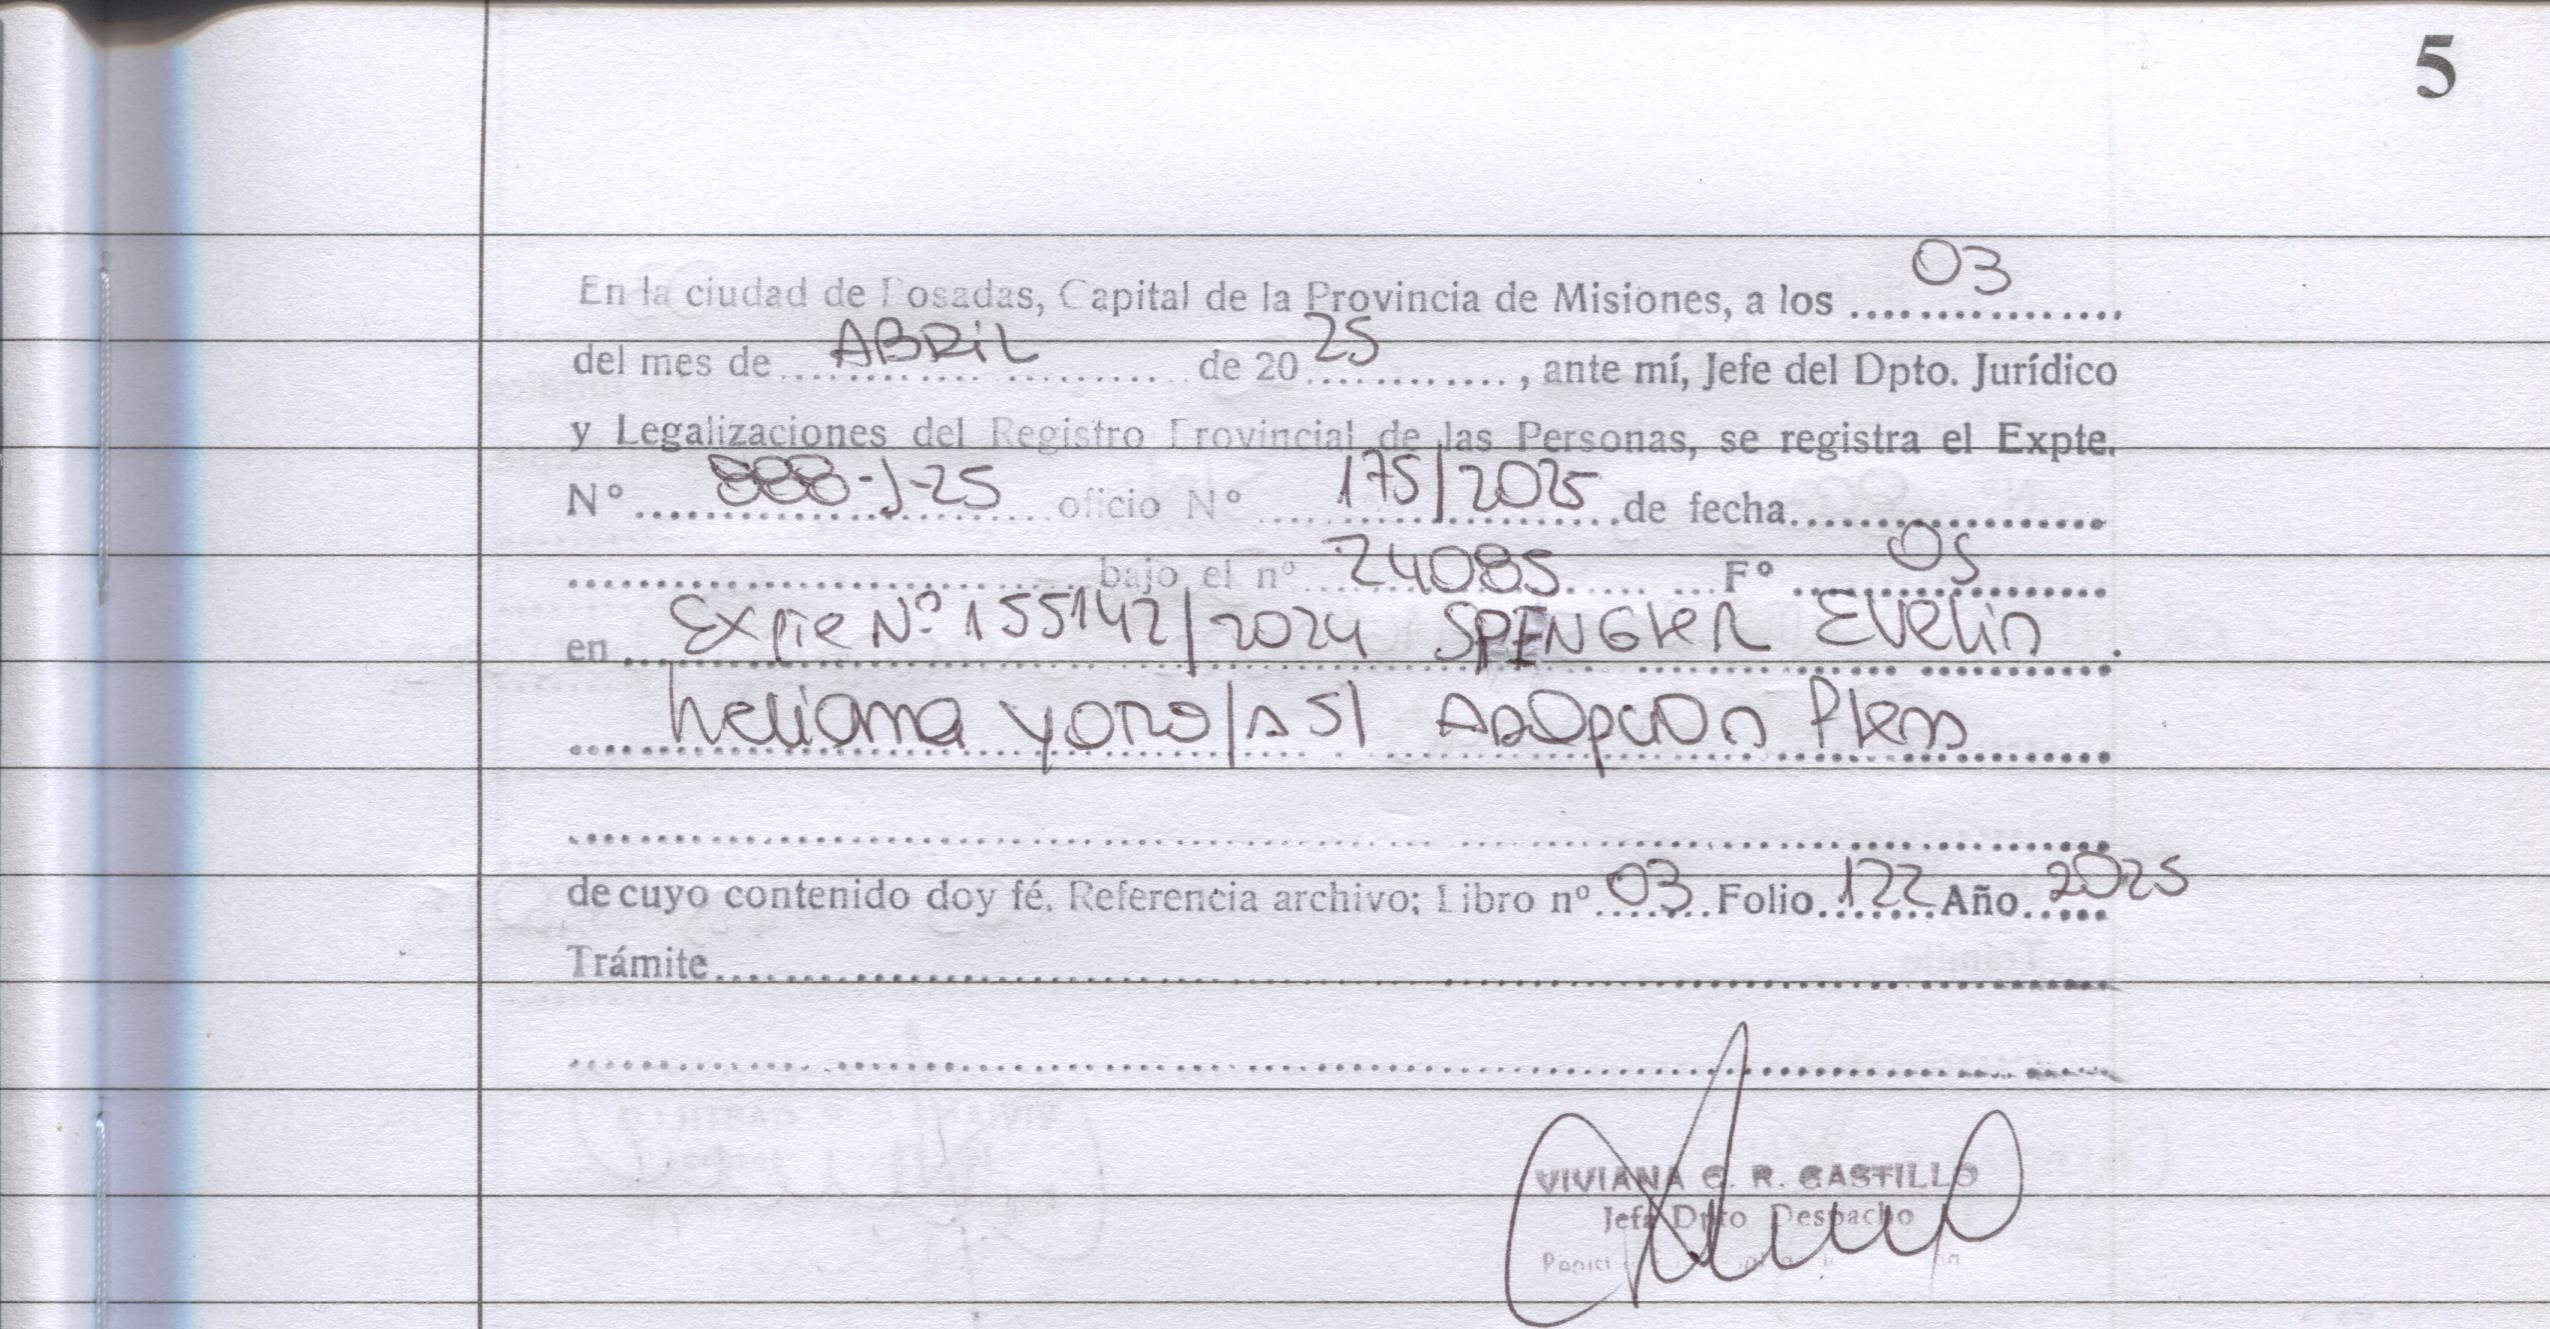 5
En la ciudad de Posadas, Capital de la Provincia de Misiones, a los 03
del mes de ABRIL de 2025, ante mí, Jefe del Dpto. Jurídico
y Legalizaciones del Registro Provincial de las Personas, se registra el Expte.
Nº 888-J-25 oficio Nº 175/2025 de fecha
bajo el nº 24085 Fº 05
en Expte Nº 155142/2024 SPENGLER Evelin
heliana y otro/a s/ Adopcion Plena
de cuyo contenido doy fé. Referencia archivo: Libro nº 03 Folio 122 Año 2025
Trámite
VIVIANA C. R. CASTILLO
Jefa Dpto Despacho